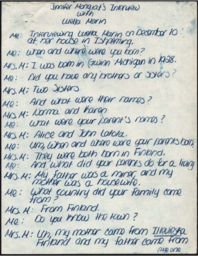 Jennifer Interview
with
Marin
Me: Interviewing Marin on December 10
at her house in Ishpeming.
Me: When and where were you born?
Mrs. M: I was born in Gwinn Michigan in 1928.
Me: Did you have any brothers or sisters?
Mrs. M: Two Sisters
Me: And what were their names?
Mrs. M: Norma and Karen
Me: What were your parent's name?
Mrs. M: Alice and John
Me: Um, When and where were your parents born
Mrs. M: They were both born in Finland.
Me: And what did your parents do for a living
Mrs. M: My Father was a miner and my
mother was a housewife.
Me: What country did your family come
from?
Mrs. M: From Finland.
Me: Do you know the town?
Mrs. M: Uh, my mother came from
Finland and my father came from
Page one